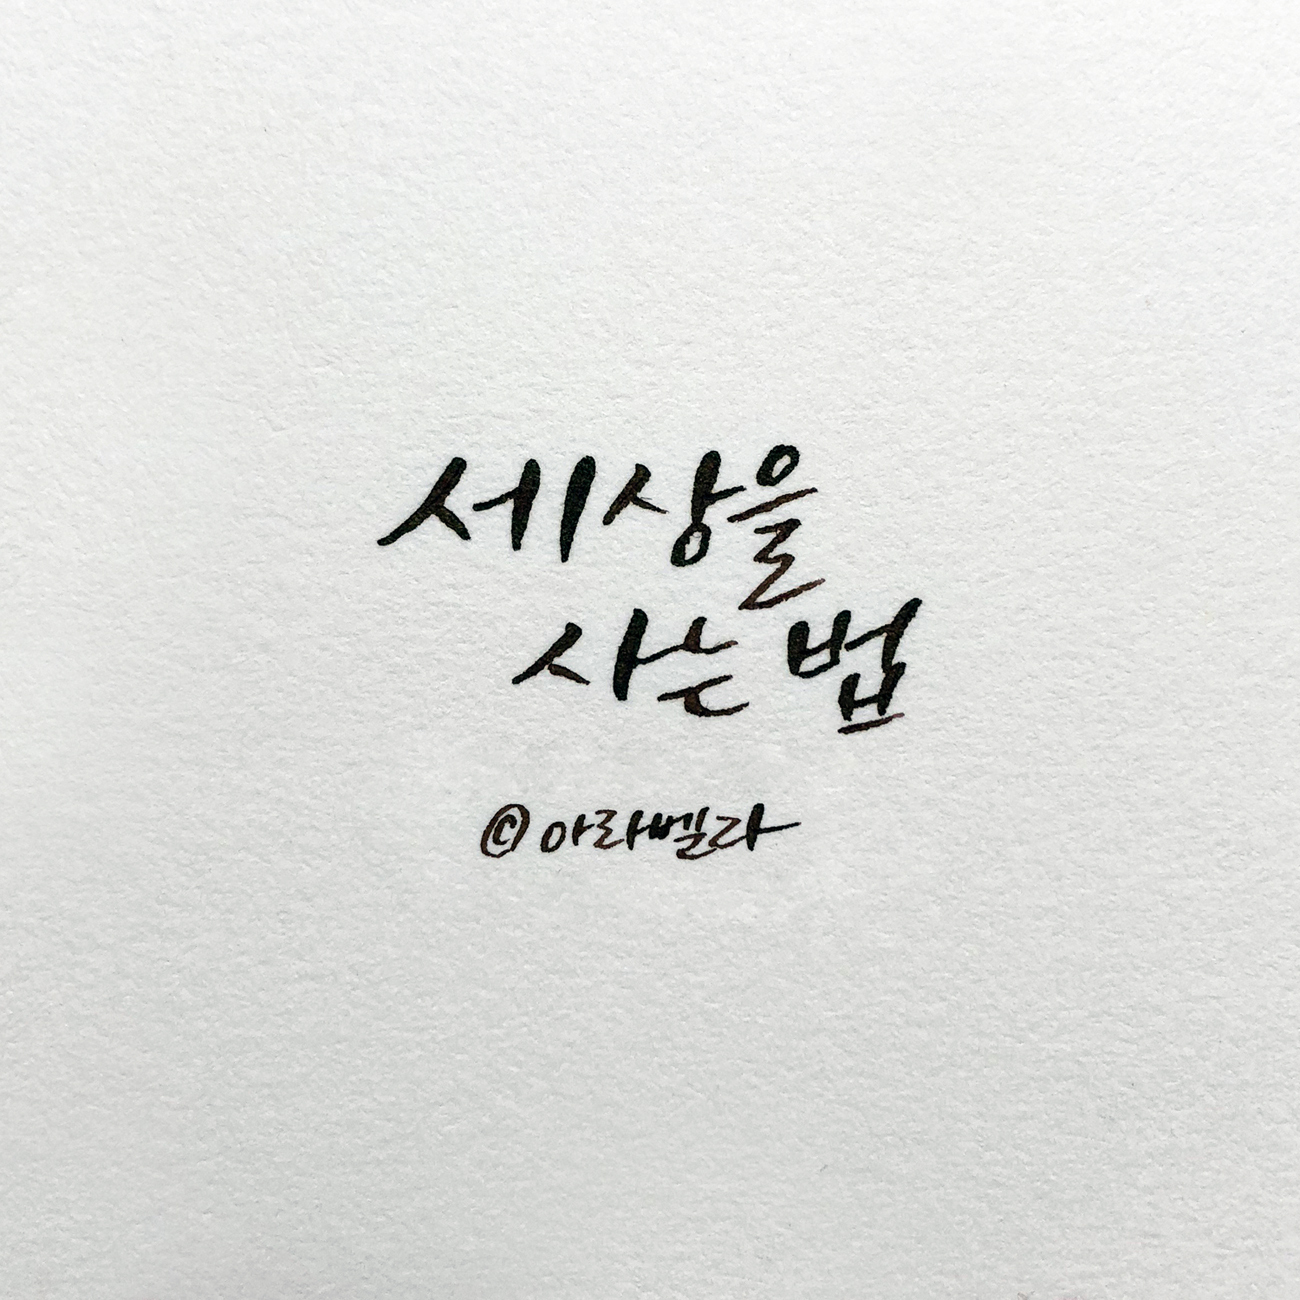 세상을
사는 법
© 아라벨라